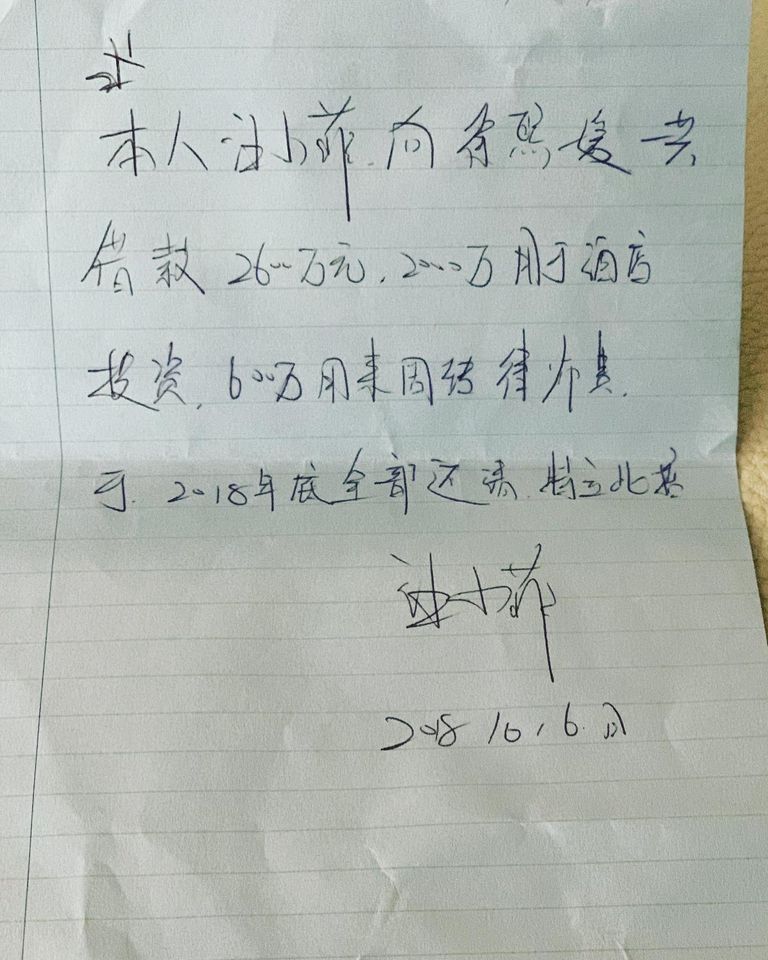 本人汪小菲向徐熙媛共
借款2600万元,2000万用于酒店
投资,600万用来周转律师费.
于.2018年底全部还清.特立此据
汪小菲
2018 10,6.日